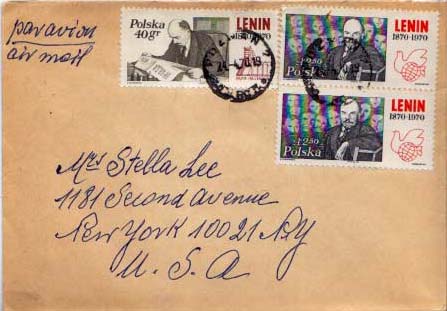 par avion
air mail
Polska
40 gr
LENIN
1870-1970
LENIN
1870-1970
+2.50
Polska
LENIN
1870-1970
+2.50
Polska
Mrs Stella Lee
1181 Second avenue
New York 10021 NY
U. S. A